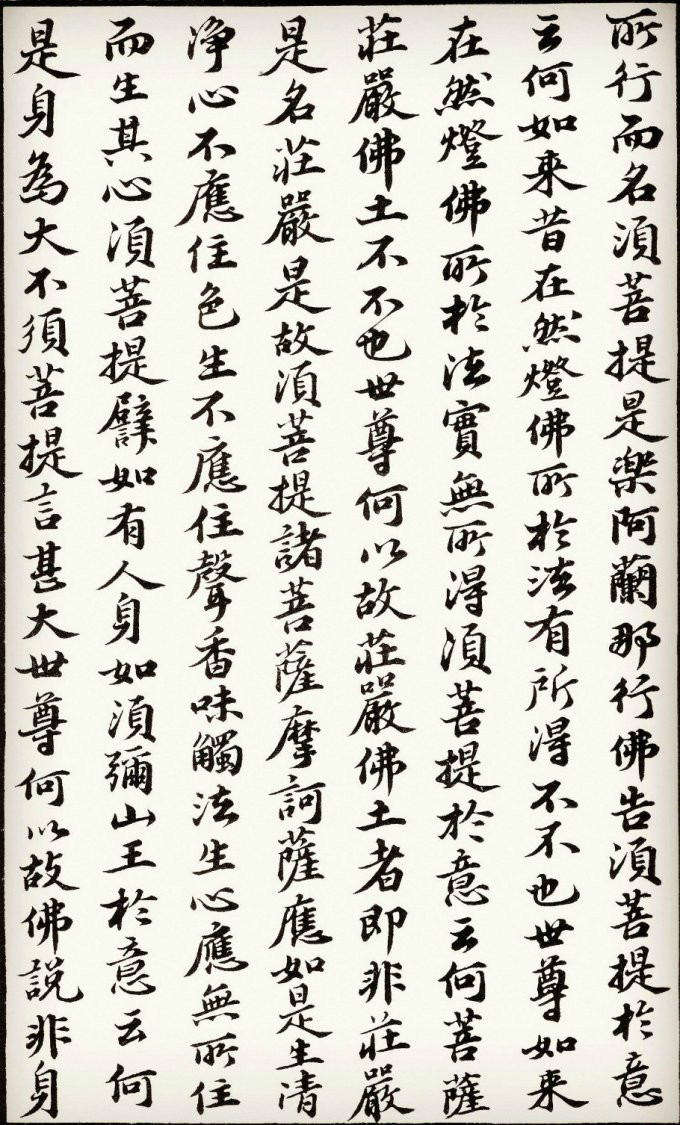 所行而名須菩提是樂阿蘭那行佛告須菩提於意
云何如來昔在然燈佛所於法有所得不不也世尊如來
在然燈佛所於法實無所得須菩提於意云何菩薩
莊嚴佛土不不也世尊何以故莊嚴佛土者即非莊嚴
是名莊嚴是故須菩提諸菩薩摩訶薩應如是生清
淨心不應住色生不應住聲香味觸法生心應無所住
而生其心須菩提譬如有人身如須彌山王於意云何
是身為大不須菩提言甚大世尊何以故佛說非身